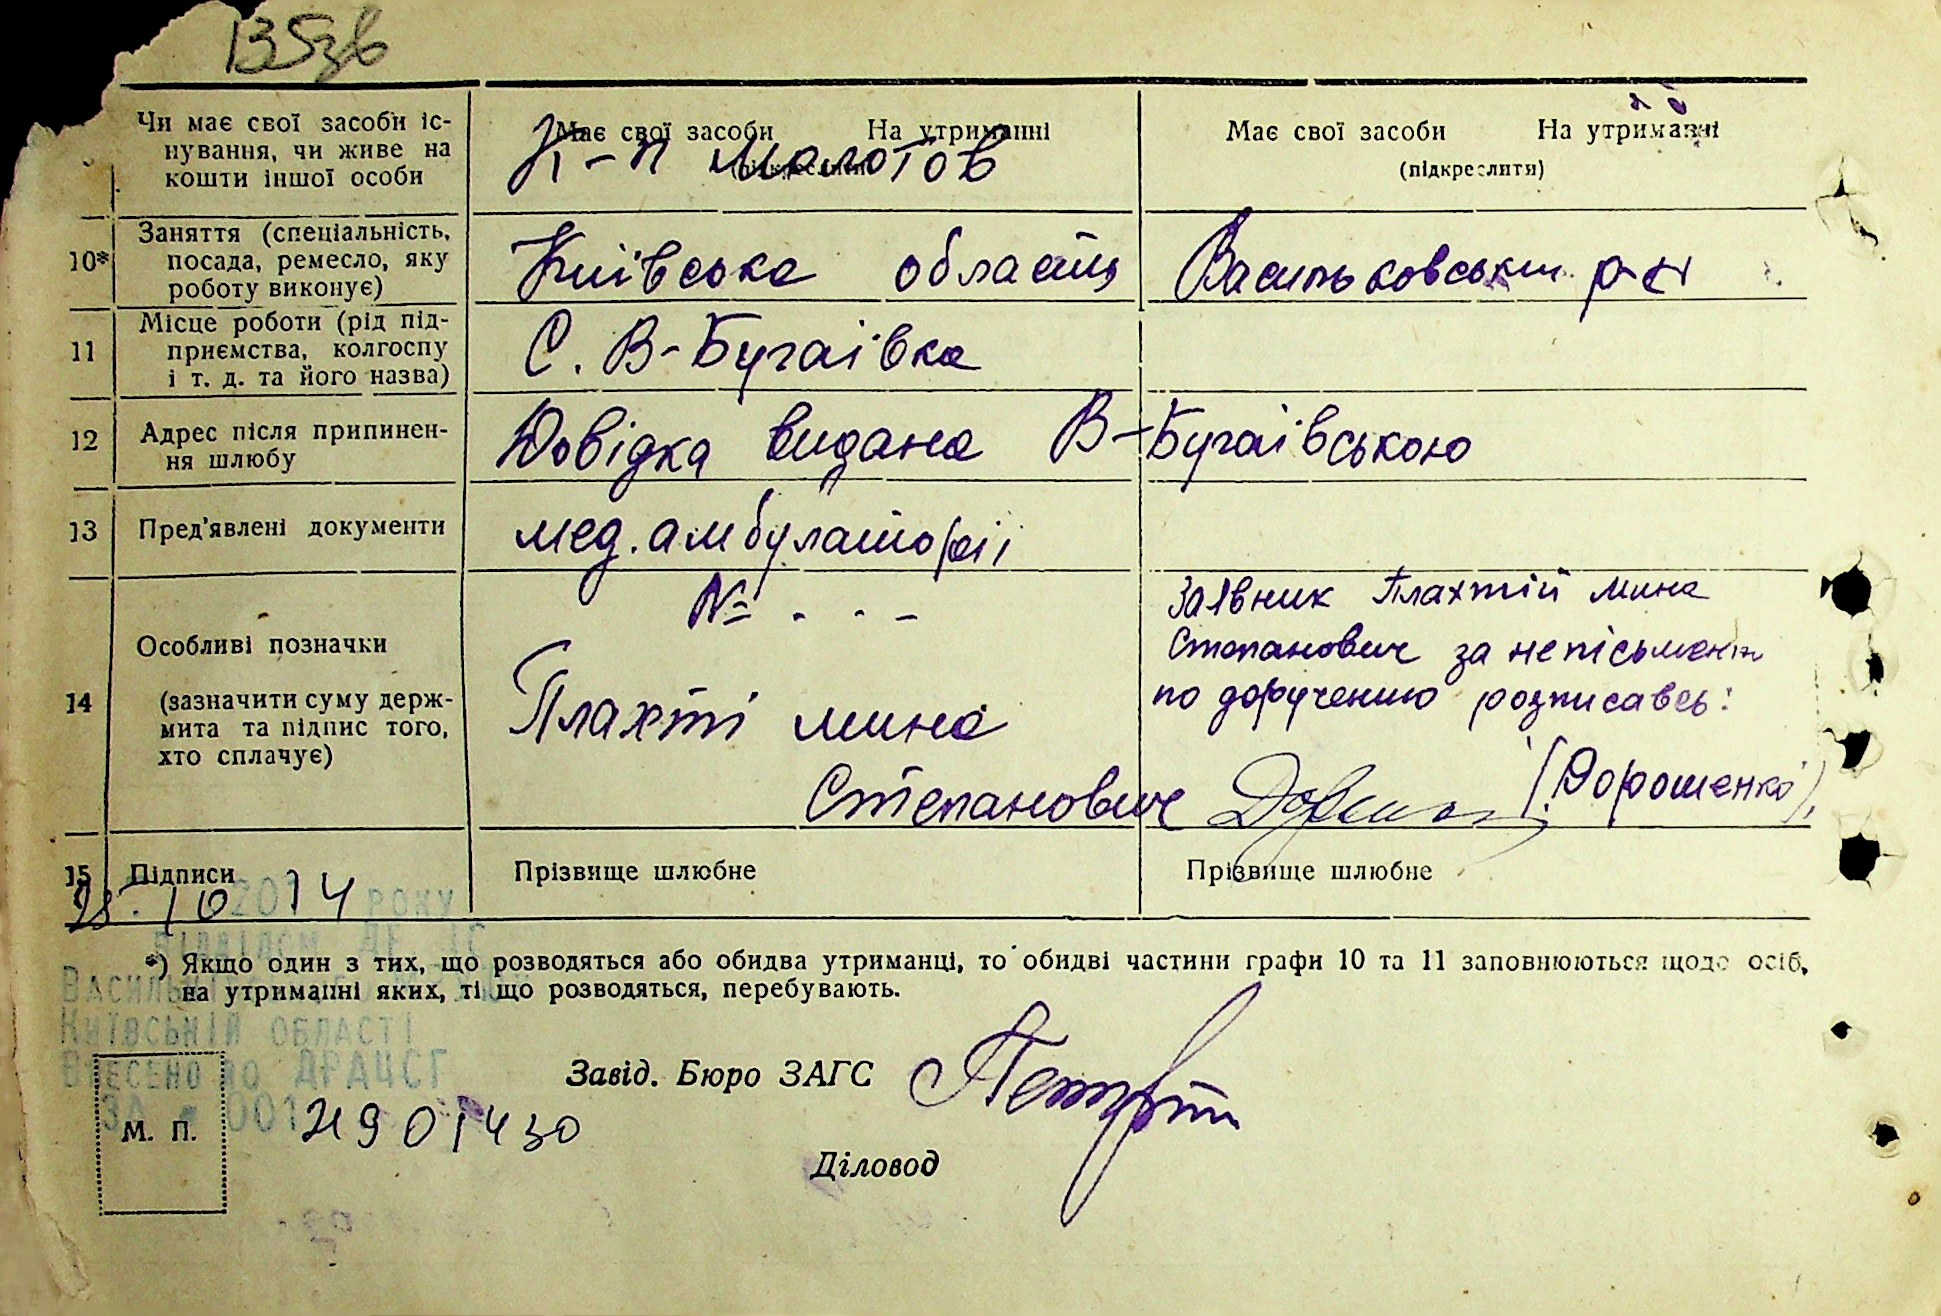 135зв
Чи має свої засоби іс-
нування, чи живе на
кошти іншої особи
Має свої засоби На утриманні
К-п Молотов
Має свої засоби На утриманні
(підкреслити)
10*
Заняття (спеціальність,
посада, ремесло, яку
роботу виконує)
Київська область
Васильковський р-н
11
Місце роботи (рід під-
приємства, колгоспу
і т. д. та його назва)
С. В-Бугаївка
12
Адрес після припинен-
ня шлюбу
Довідка видана В-Бугаївською
13
Пред'явлені документи
мед. амбулаторії
14
Особливі позначки
(зазначити суму держ-
мита та підпис того,
хто сплачує)
№ . - -
Плахті Мина
Степанович
Заявник Плахтій Мина
Степанович за непісьмент
по доручению розписавсь:
(Дорошенко)
15
Підписи
Прізвище шлюбне
Прізвище шлюбне
10 2014 року
відділом ДР ЦС
*) Якщо один з тих, що розводяться або обидва утриманці, то обидві частини графи 10 та 11 заповнюються щодо осіб,
на утриманні яких, ті що розводяться, перебувають.
Київській області
Внесено до ДРАЦСГ
за № 001
Завід. Бюро ЗАГС
М. П.
Діловод